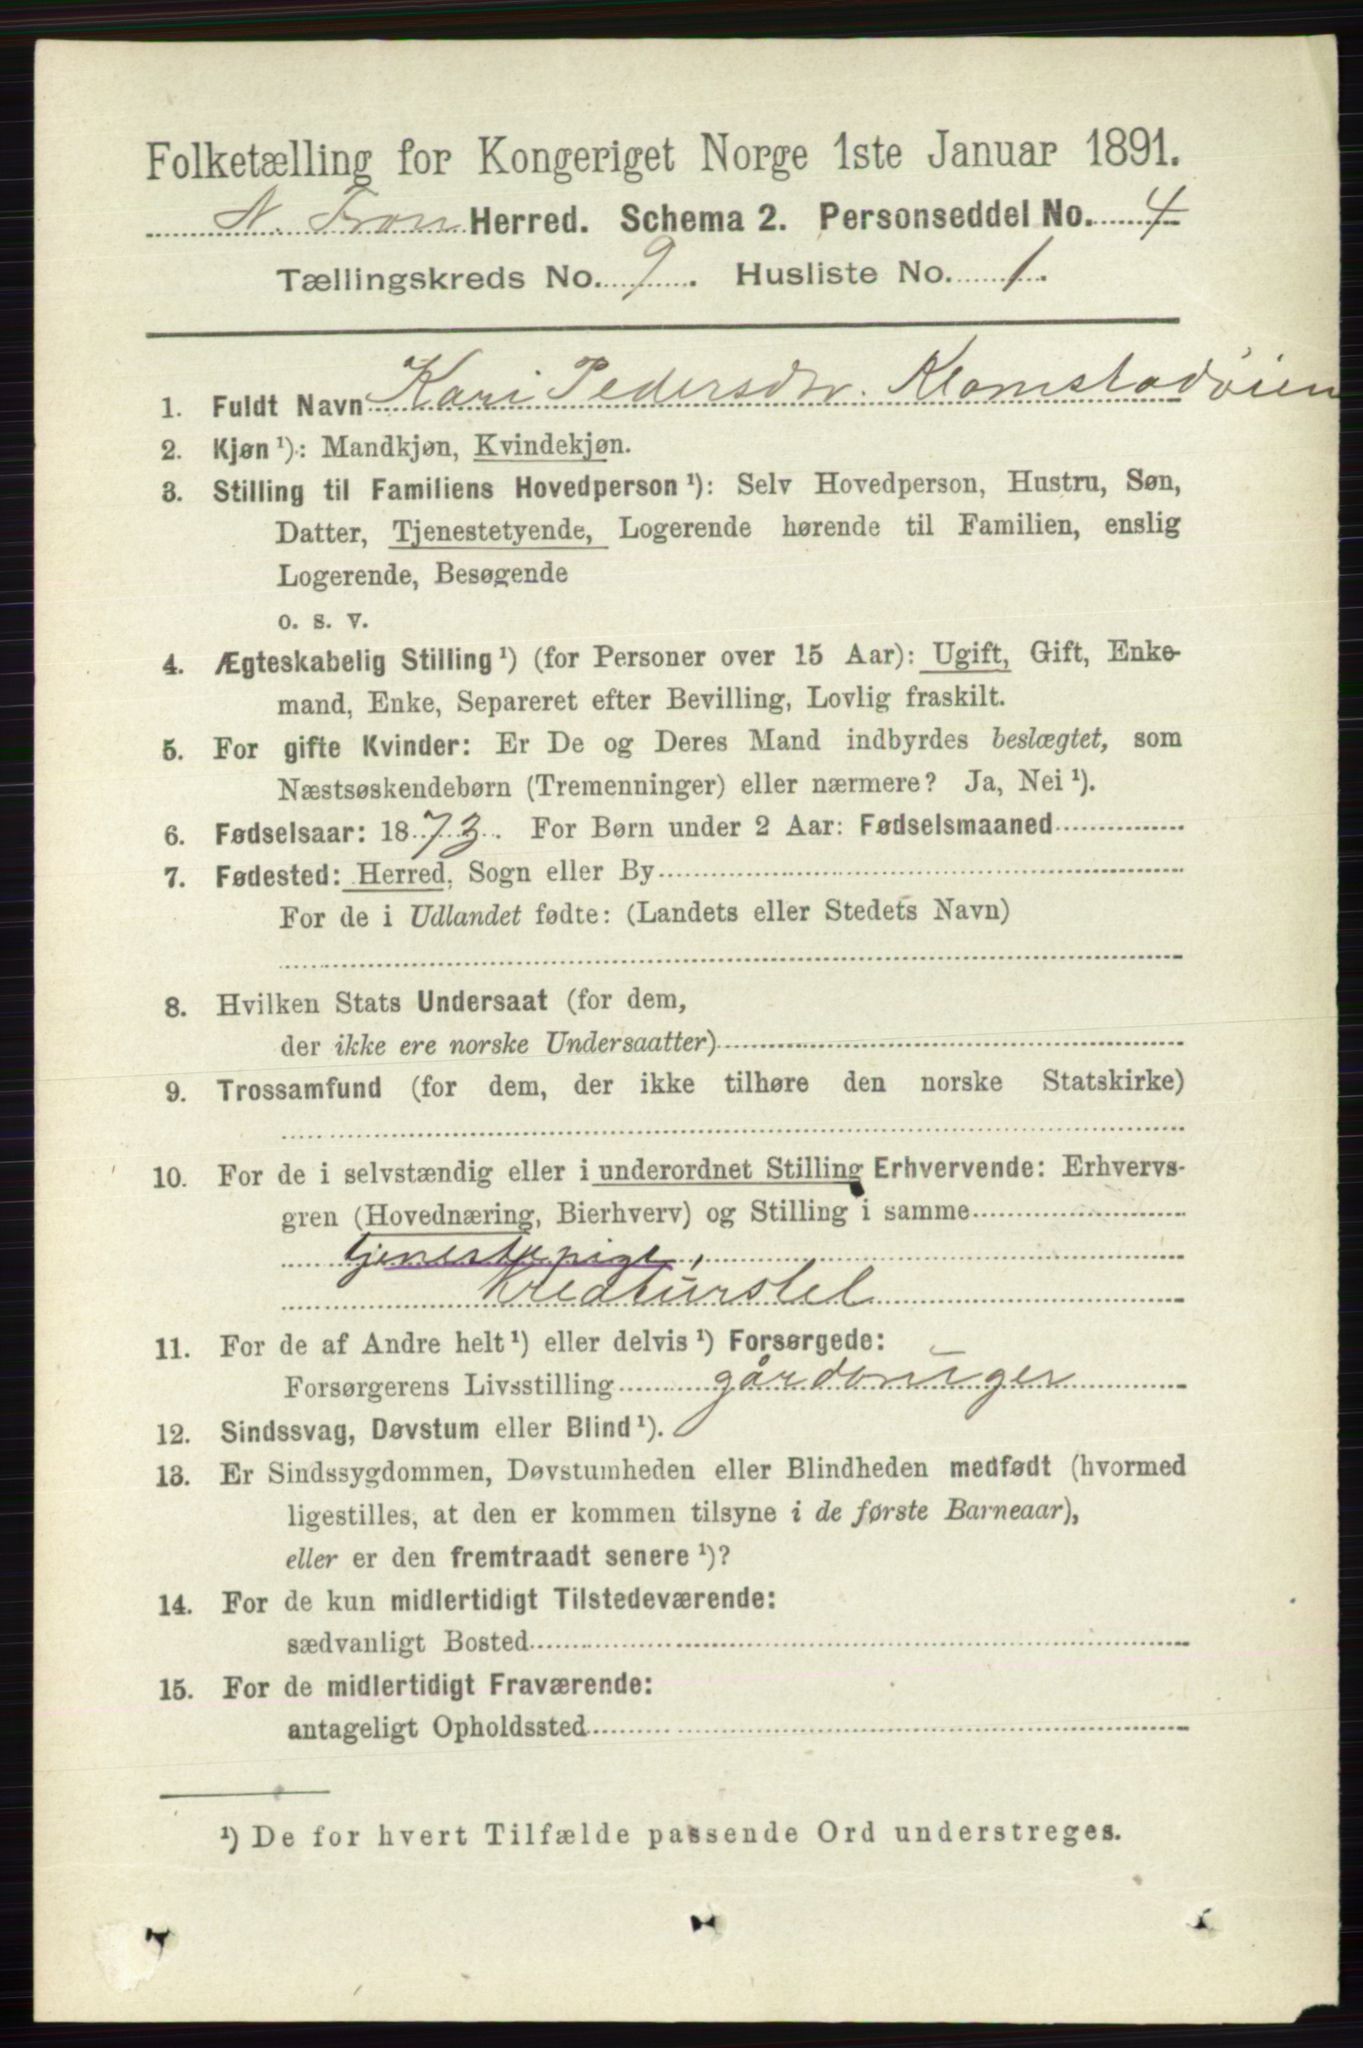 Folketælling for Kongeriget Norge 1ste Januar 1891.
N. Fron Herred. Schema 2. Personseddel No. 4
Tællingskreds No. 9. Husliste No. 1.
1. Fuldt Navn Kari Pedersdtr. Klomstadøien
2. Kjøn¹): Mandkjøn, Kvindekjøn.
3. Stilling til Familiens Hovedperson¹): Selv Hovedperson, Hustru, Søn,
Datter, Tjenestetyende, Logerende hørende til Familien, enslig
Logerende, Besøgende
o. s. v.
4. Ægteskabelig Stilling¹) (for Personer over 15 Aar): Ugift, Gift, Enke-
mand, Enke, Separeret efter Bevilling, Lovlig fraskilt.
5. For gifte Kvinder: Er De og Deres Mand indbyrdes beslægtet, som
Næstsøskendebørn (Tremenninger) eller nærmere? Ja, Nei¹).
6. Fødselsaar: 1873. For Børn under 2 Aar: Fødselsmaaned
7. Fødested: Herred, Sogn eller By
For de i Udlandet fødte: (Landets eller Stedets Navn)
8. Hvilken Stats Undersaat (for dem,
der ikke ere norske Undersaatter)
9. Trossamfund (for dem, der ikke tilhøre den norske Statskirke)
10. For de i selvstændig eller i underordnet Stilling Erhvervende: Erhvervs-
gren (Hovednæring, Bierhverv) og Stilling i samme
tjenestepige,
Kreaturstel
11. For de af Andre helt¹) eller delvis¹) Forsørgede:
Forsørgerens Livsstilling gårdbruger
12. Sindssvag, Døvstum eller Blind¹).
13. Er Sindssygdommen, Døvstumheden eller Blindheden medfødt (hvormed
ligestilles, at den er kommen tilsyne i de første Barneaar),
eller er den fremtraadt senere¹)?
14. For de kun midlertidigt Tilstedeværende:
sædvanligt Bosted
15. For de midlertidigt Fraværende:
antageligt Opholdssted
¹) De for hvert Tilfælde passende Ord understreges.